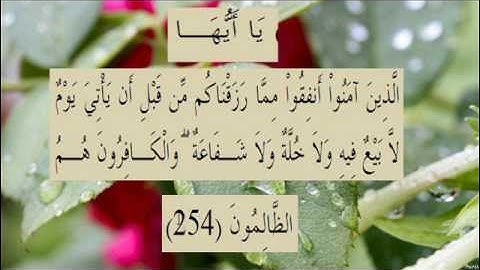 يَا أَيُّهَـــا
الَّذِينَ آمَنُواْ أَنفِقُواْ مِمَّا رَزَقْنَاكُم مِّن قَبْلِ أَن يَأْتِيَ يَوْمٌ
لاَّ بَيْعٌ فِيهِ وَلاَ خُلَّةٌ وَلاَ شَــفَاعَةٌ ۗ وَالْكَـافِرُونَ هُـــمُ
الظَّالِمُونَ (254)